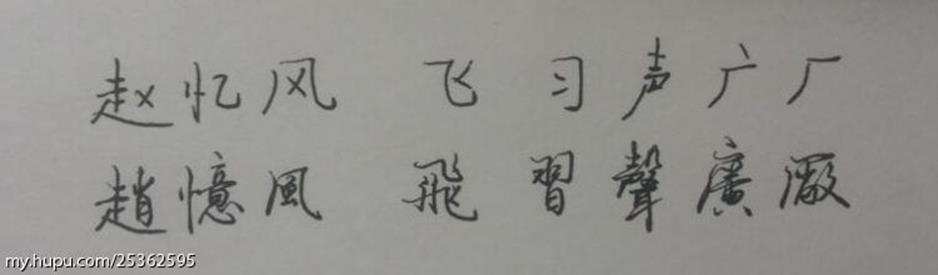 赵忆风 飞 习声广厂
趙憶風 飛 習聲廣厰
my.hupu.com/25362595